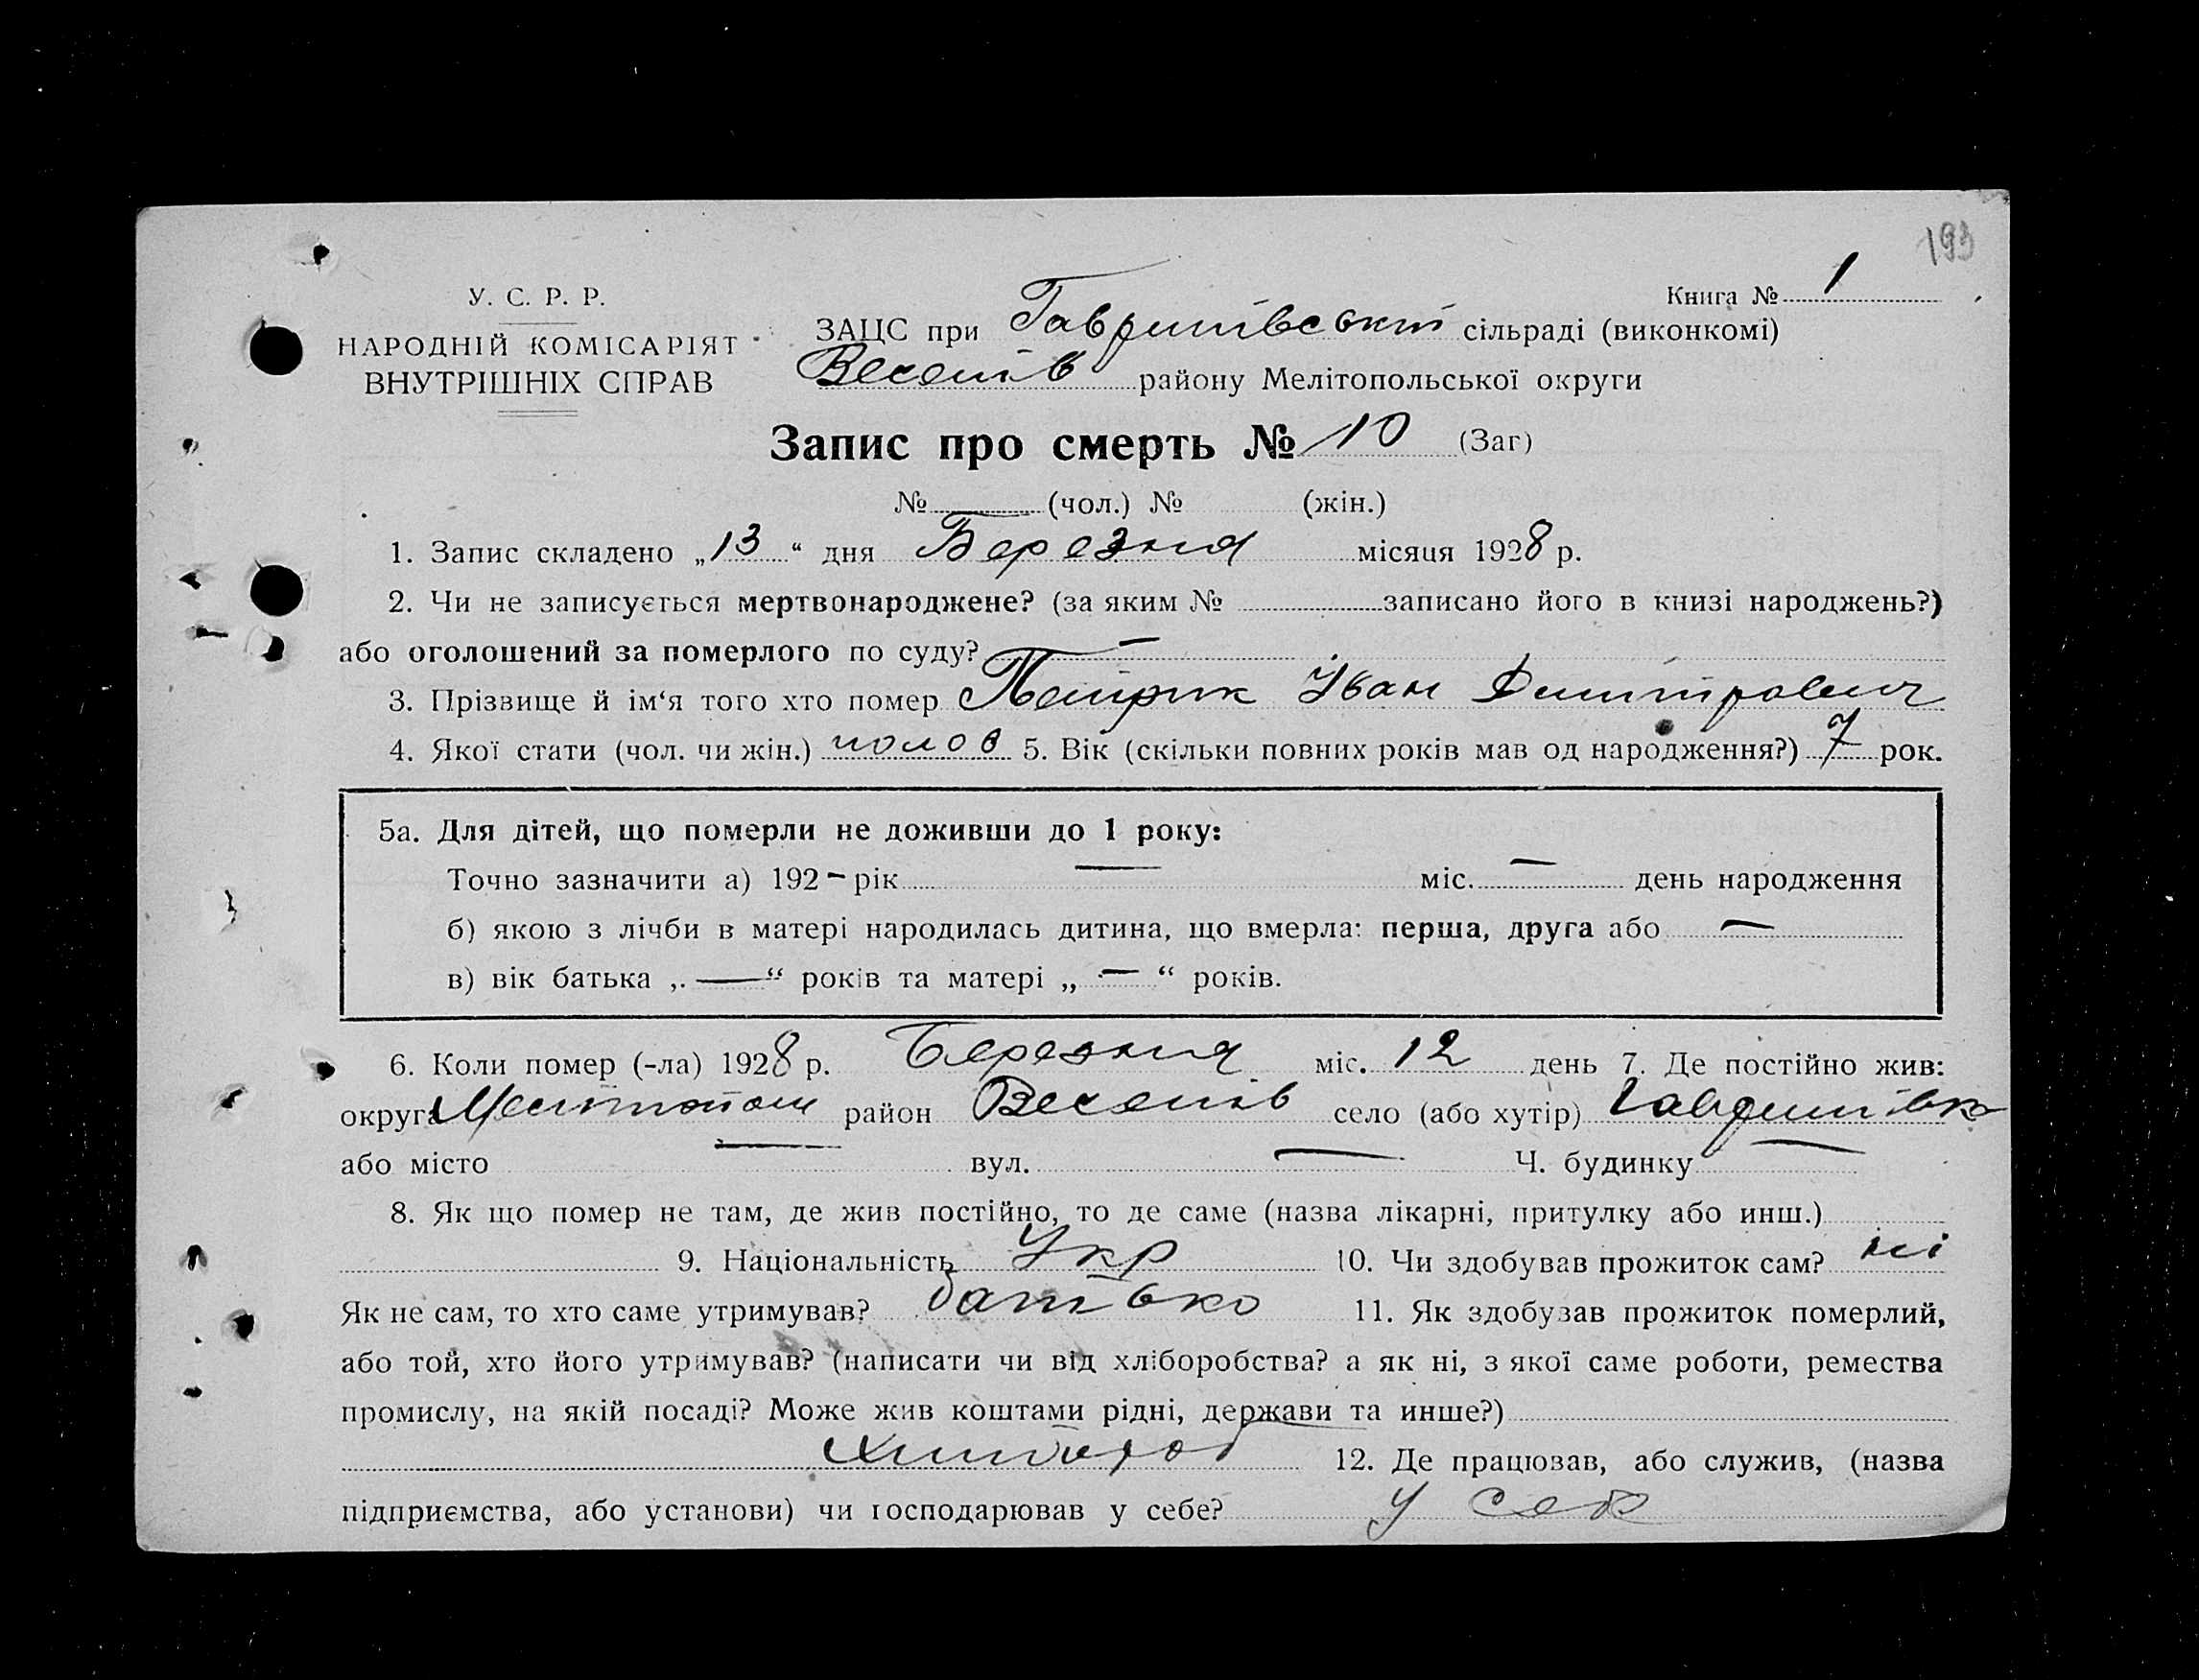 193
У. С. Р. Р.
НАРОДНІЙ КОМІСАРІЯТ
ВНУТРІШНІХ СПРАВ
Книга № 1
ЗАЦС при Гаврилівській сільраді (виконкомі)
Веселів району Мелітопольської округи
Запис про смерть № 10 (Заг)
№ — (чол.) № (жін.)
1. Запис складено „13“ дня Березня місяця 1928 р.
2. Чи не записується мертвонароджене? (за яким № записано його в книзі народжень?)
або оголошений за померлого по суду? —
3. Прізвище й ім‘я того хто помер Іван Димитрович
4. Якої стати (чол. чи жін.) чолов 5. Вік (скільки повних років мав од народження?) 7 рок.
5а. Для дітей, що померли не доживши до 1 року:
Точно зазначити а) 192– рік — міс. — день народження
б) якою з лічби в матері народилась дитина, що вмерла: перша, друга або —
в) вік батька „—“ років та матері „—“ років.
6. Коли помер (-ла) 1928 р. Березня міс. 12 день 7. Де постійно жив:
округа Мелітополь район Веселів село (або хутір) Гаврилівка
або місто — вул. — Ч. будинку —
8. Як що помер не там, де жив постійно, то де саме (назва лікарні, притулку або инш.)
9. Національність Укр 10. Чи здобував прожиток сам? ні
Як не сам, то хто саме утримував? батько 11. Як здобував прожиток померлий,
або той, хто його утримував? (написати чи від хліборобства? а як ні, з якої саме роботи, ремества
промислу, на якій посаді? Може жив коштами рідні, держави та инше?)
хлібороб 12. Де працював, або служив, (назва
підприємства, або установи) чи господарював у себе? у себе